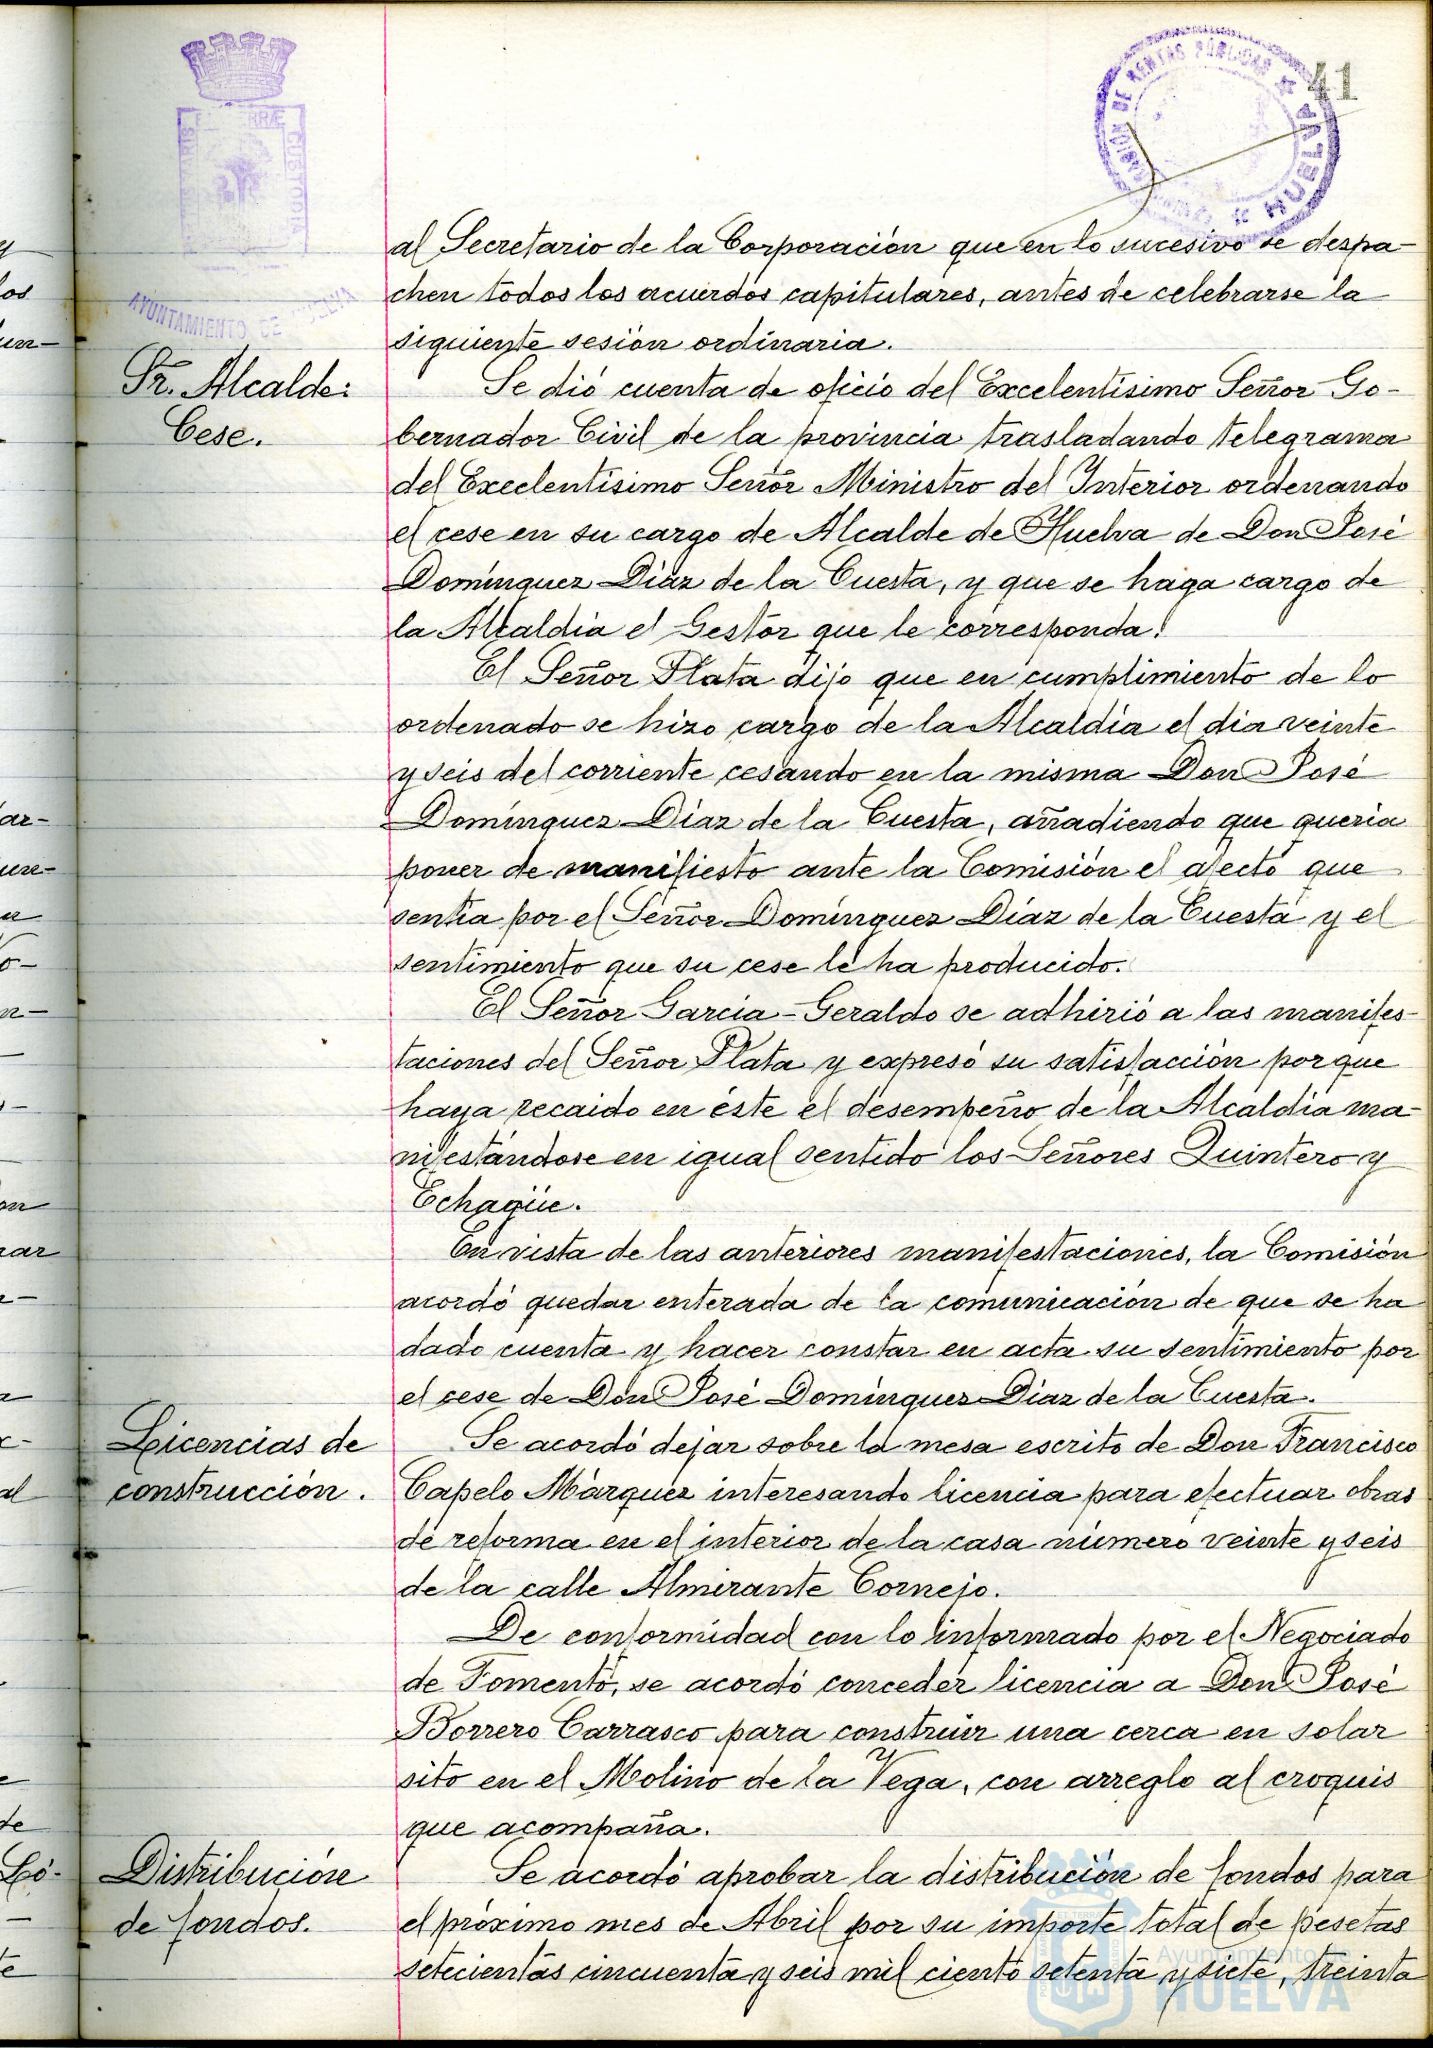 41
RENTAS PÚBLICAS
HUELVA
CUSTODIA
AYUNTAMIENTO DE HUELVA
al Secretario de la Corporación que en lo sucesivo se despa-
chen todos los acuerdos capitulares, antes de celebrarse la
siguiente sesión ordinaria.
Sr. Alcalde:
Cese.
Se dió cuenta de oficio del Excelentísimo Señor Go-
bernador Civil de la provincia trasladando telegrama
del Execlentísimo Señor Ministro del Interior ordenando
el cese en su cargo de Alcalde de Huelva de Don José
Domínguez Díaz de la Cuesta, y que se haga cargo de
la Alcaldía el Gestor que le corresponda.
El Señor Plata dijo que en cumplimiento de lo
ordenado se hizo cargo de la Alcaldía el dia veinte
y seis del corriente cesando en la misma Don José
Domínguez Díaz de la Cuesta, añadiendo que queria
poner de manifiesto ante la Comisión el afecto que
sentía por el Señor Domínguez Díaz de la Cuesta y el
sentimiento que su cese le ha producido.
El Señor García-Geraldo se adhirió a las manifes-
taciones del Señor Plata y expresó su satisfacción porque
haya recaido en éste el desempeño de la Alcaldía ma-
nifestándose en igual sentido los Señores Quintero y
Echagüe.
En vista de las anteriores manifestaciones, la Comisión
acordó quedar enterada de la comunicación de que se ha
dado cuenta y hacer constar en acta su sentimiento por
el cese de Don José Domínguez Díaz de la Cuesta.
Licencias de
construcción.
Se acordó dejar sobre la mesa escrito de Don Francisco
Capelo Márquez interesando licencia para efectuar obras
de reforma en el interior de la casa número veinte y seis
de la calle Almirante Cornejo.
De conformidad con lo informado por el Negociado
de Fomento, se acordó conceder licencia a Don José
Borrero Carrasco para construir una cerca en solar
sito en el Molino de la Vega, con arreglo al croquis
que acompaña.
Distribución
de fondos.
Se acordó aprobar la distribución de fondos para
el próximo mes de Abril por su importe total de pesetas
setecientas cincuenta y seis mil ciento setenta y siete, treinta
Ayuntamiento de
HUELVA